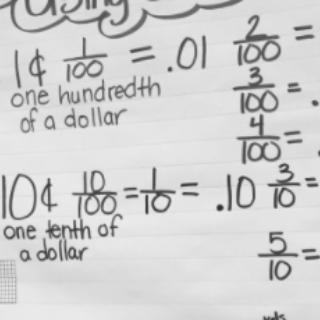 Using
1¢ 1/100 = .01 2/100 =
one hundredth 3/100 = .
of a dollar 4/100 = .
10¢ 10/100 = 1/10 = .10 3/10 =
one tenth of
a dollar 5/10 =